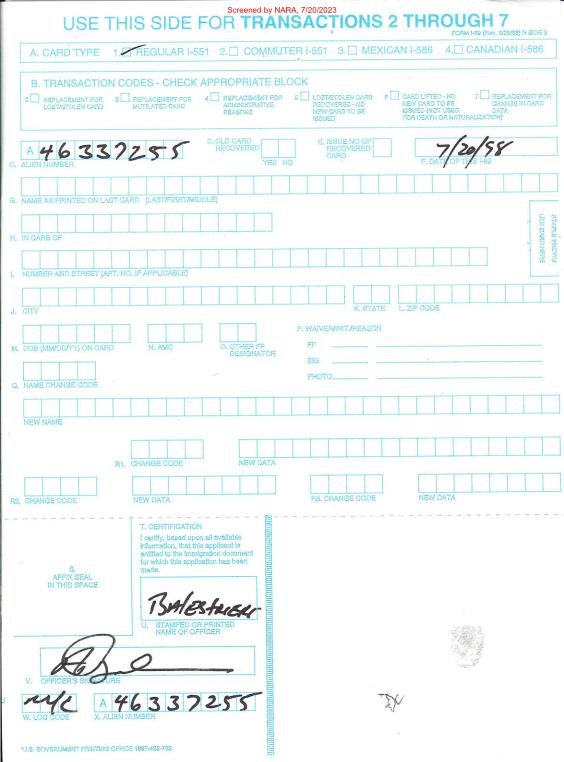 Screened by NARA, 7/20/2023
USE THIS SIDE FOR TRANSACTIONS 2 THROUGH 7
A. CARD TYPE 1. REGULAR I-551 2. COMMUTER I-551 3. MEXICAN I-586 4. CANADIAN I-586
B. TRANSACTION CODES - CHECK APPROPRIATE BLOCK
2 REPLACEMENT FOR LOST/STOLEN CARD
3 REPLACEMENT FOR MUTILATED CARD
4 REPLACEMENT FOR ADMINISTRATIVE REASONS
5 LOST/STOLEN CARD RECOVERED - NO NEW CARD TO BE ISSUED
6 CARD LIFTED - NO NEW CARD TO BE ISSUED (NOT USED FOR DEATH OR NATURALIZATION)
7 REPLACEMENT FOR CHANGE IN CARD DATA
A 46337255
C. ALIEN NUMBER
D. OLD CARD RECOVERED
YES NO
E. ISSUE NO OF RECOVERED CARD
7/20/98
F. DATE OF THIS I-89
G. NAME AS PRINTED ON LAST CARD (LAST/FIRST/MIDDLE)
H. IN CARE OF
I. NUMBER AND STREET (APT. NO. IF APPLICABLE)
J. CITY
K. STATE
L. ZIP CODE
M. DOB (MM/DD/YY) ON CARD
N. AMC
O. OTHER FP DESIGNATOR
P. WAIVER/INIT/REASON
FP
SIG
PHOTO
Q. NAME CHANGE CODE
NEW NAME
R1. CHANGE CODE
NEW DATA
R2. CHANGE CODE
NEW DATA
R3. CHANGE CODE
NEW DATA
S. AFFIX SEAL IN THIS SPACE
T. CERTIFICATION
I certify, based upon all available
information, that this applicant is
entitled to the immigration document
for which this application has been
made.
U. STAMPED OR PRINTED NAME OF OFFICER
V. OFFICER'S SIGNATURE
W. LOG CODE
A 46337255
X. ALIEN NUMBER